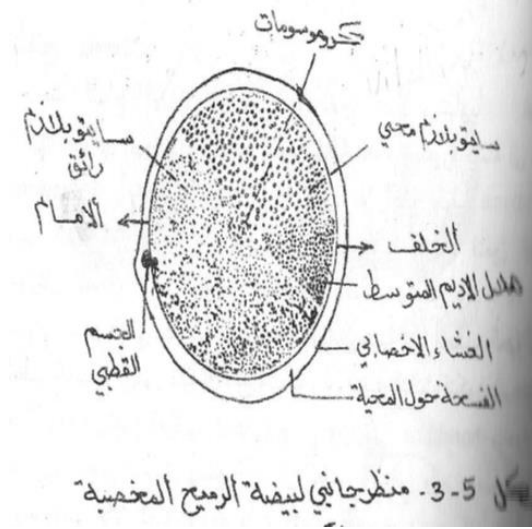 كروموسومات
سايتوبلازم محي
سايتوبلازم
رائق
الامام
الخلف
هلال الاديم المتوسط
الجسم
القطبي
الغشاء الاخصابي
الفسحة حول المحية
كل 5-3. منظر جانبي لبيضة الرميح المخصبة